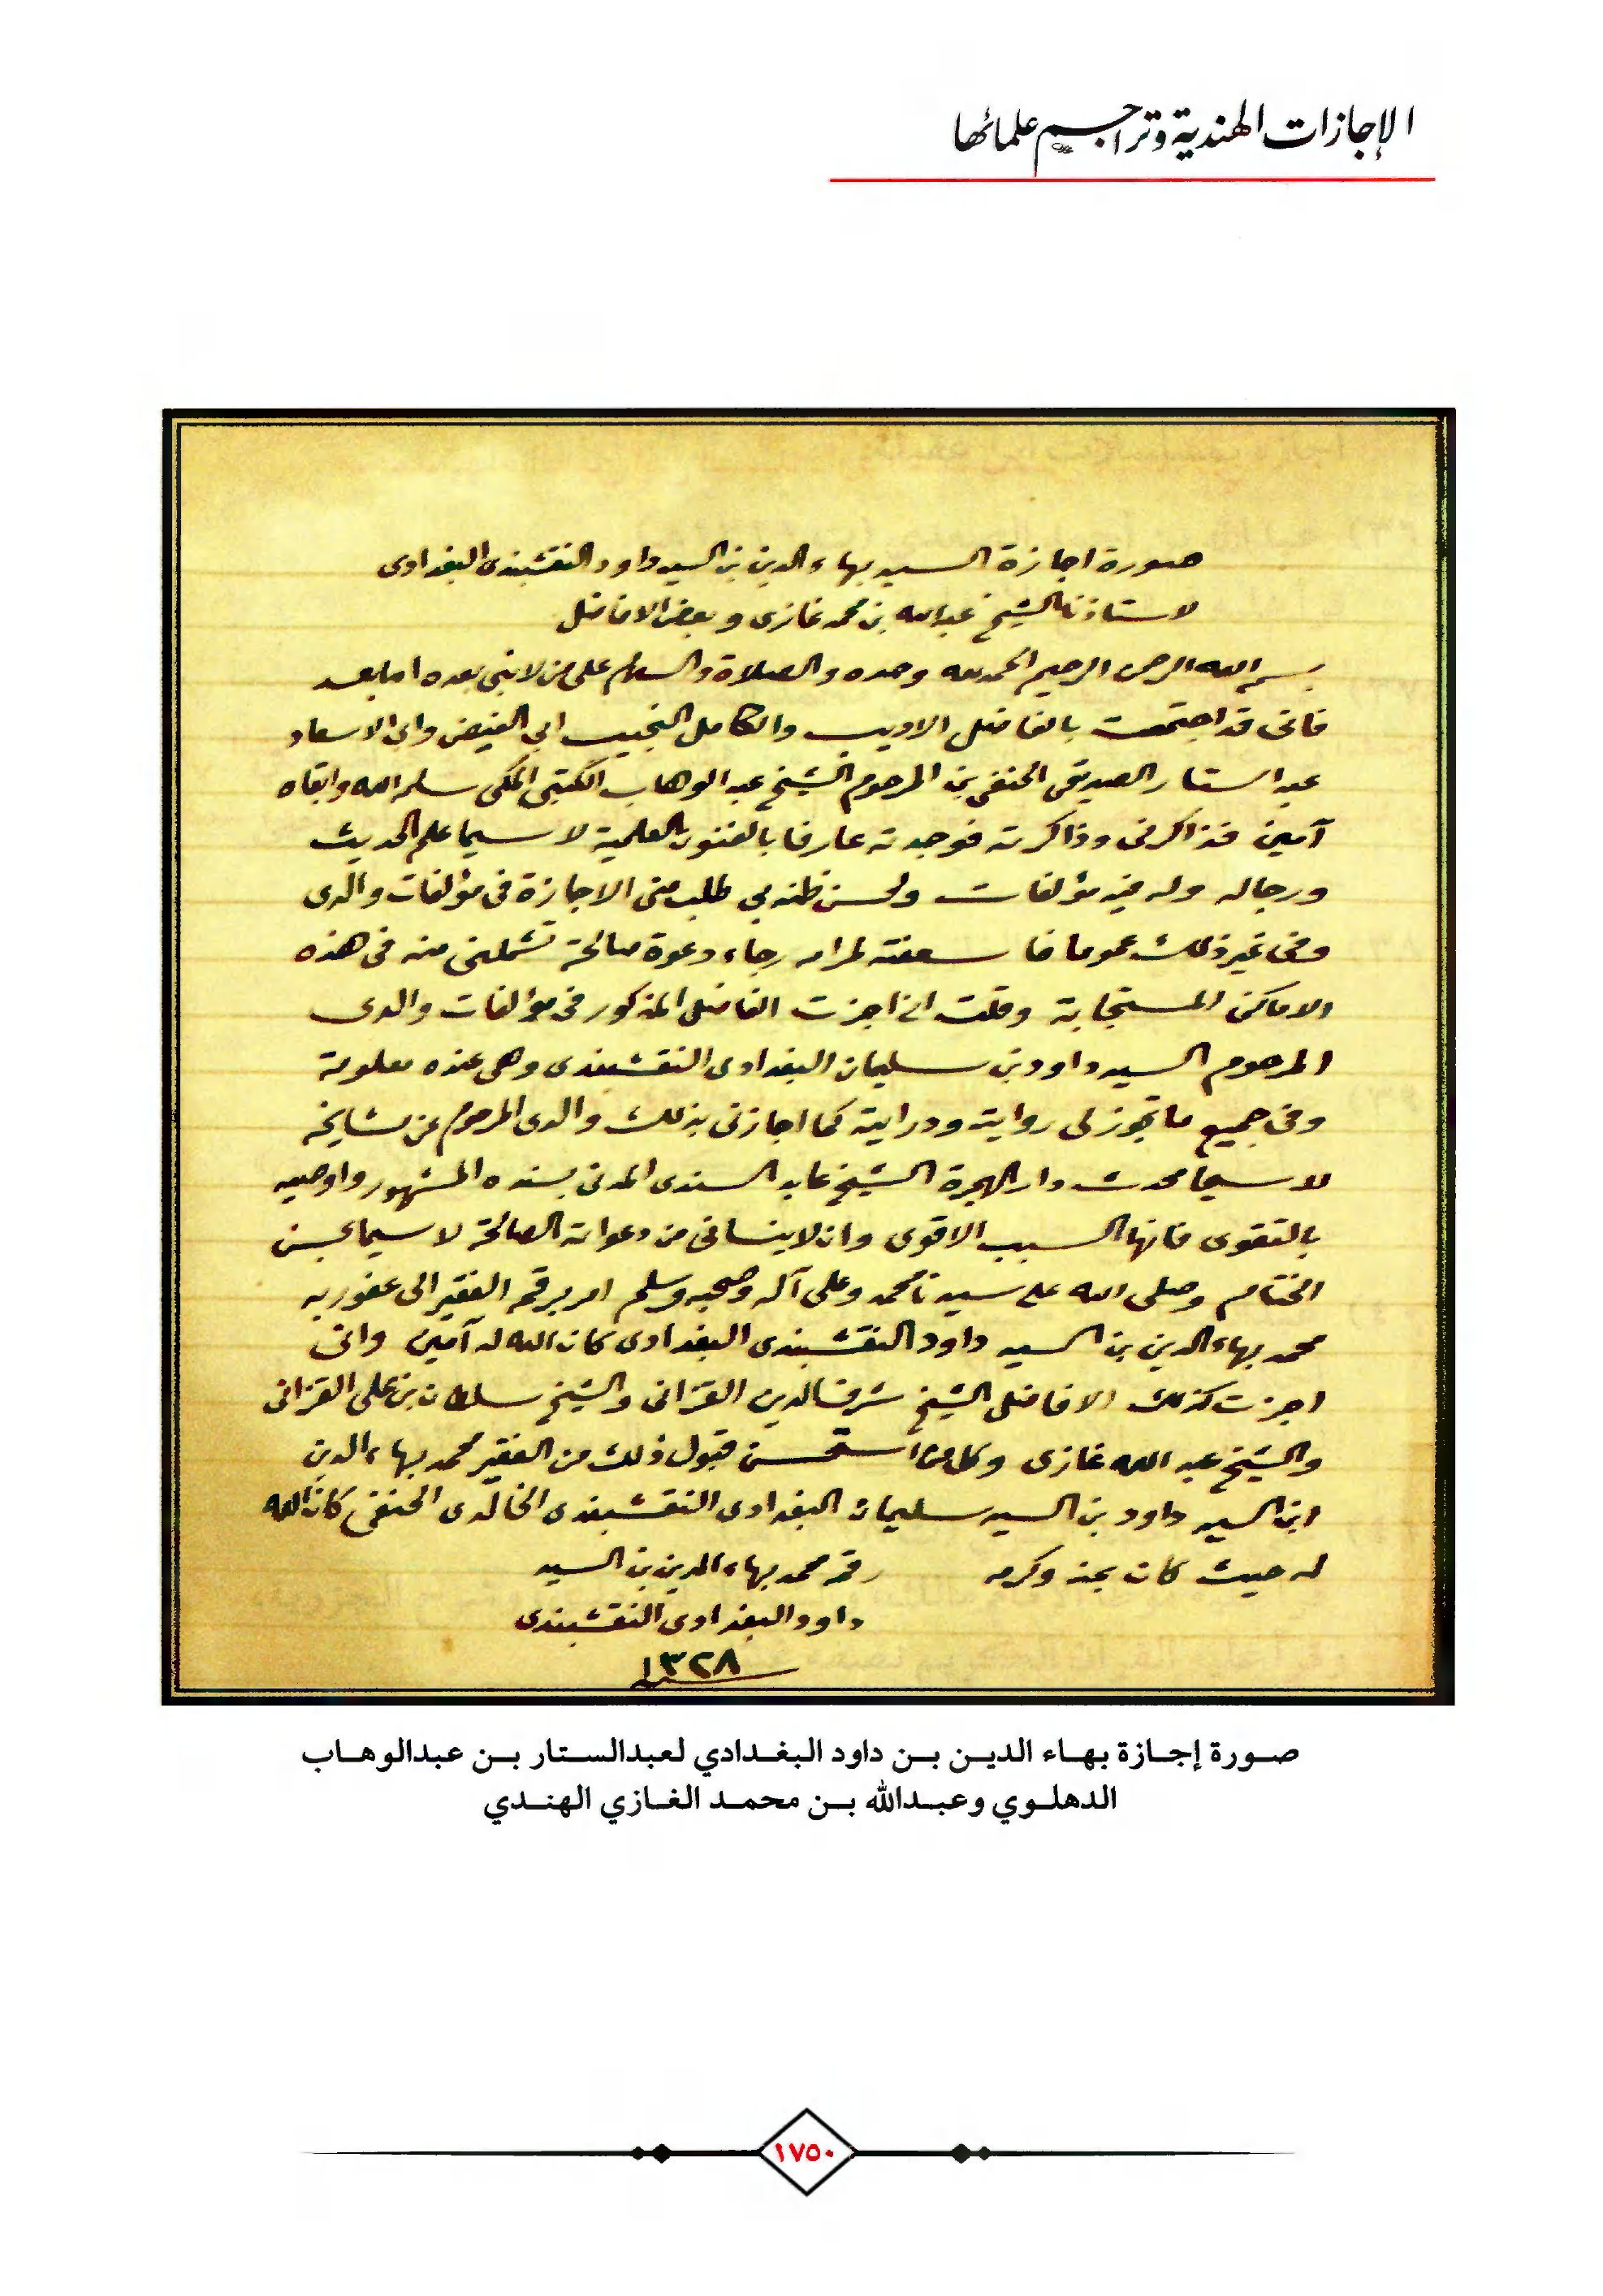 الإجازات الهندية وتراجم علمائها
صورة اجازة السيد بهاء الدين بن السيد داود النقشبندى البغدادى
لاستاذنا الشيخ عبدالله بن محمد غازى وبعض الافاضل
بسم الله الرحمن الرحيم الحمد لله وحده والصلاة والسلام على من لا نبى بعده اما بعد
فانى قد اجتمعت بالفاضل الاديب والكامل النجيب ابى الفيض وابى الاسعاد
عبد الستار الصديقى الحنفى بن المرحوم الشيخ عبد الوهاب الكتبى المكى سلمه الله وابقاه
آمين فذاكرنى وذاكرته فوجدته عارفا بالفنون العلمية لا سيما علم الحديث
ورجاله وله فيه مؤلفات ولحسن ظنه بى طلب منى الاجازة فى مؤلفات والدى
وفى غير ذلك عموما فاسعفته لمرامه رجاء دعوة صالحة تشملنى منه فى هذه
الاماكن المستجابة وقلت انى اجزت الفاضل المذكور فى مؤلفات والدى
المرحوم السيد داود بن سليمان البغدادى النقشبندى وهى عنده معلومة
وفى جميع ما تجوز لى رواية ودراية كما اجازنى بذلك والدى المرحوم عن مشايخه
لا سيما محدث دار الهجرة الشيخ عابد السندى المدنى بسنده المشهور واوصيه
بالتقوى فانها السبب الاقوى وان لا ينسانى من دعواته الصالحة لا سيما بحسن
الختام وصلى الله على سيدنا محمد وعلى آله وصحبه وسلم امر برقمه الفقير الى عفو ربه
محمد بهاء الدين بن السيد داود النقشبندى البغدادى كان الله له آمين وانى
اجزت كذلك الافاضل الشيخ شرف الدين القزانى والشيخ سلطان بن على القزانى
والشيخ عبد الله غازى وكل من استحسن قبول ذلك من الفقير محمد بهاء الدين
ابن السيد داود بن السيد سليمان البغدادى النقشبندى الخالدى الحنفى كان الله
له حيث كان بمنه وكرمه رقمه محمد بهاء الدين بن السيد
داود البغدادى النقشبندى
١٣٢٨
صورة إجازة بهاء الدين بن داود البغدادي لعبدالستار بن عبدالوهاب
الدهلوي وعبدالله بن محمد الغازي الهندي
١٧٥٠